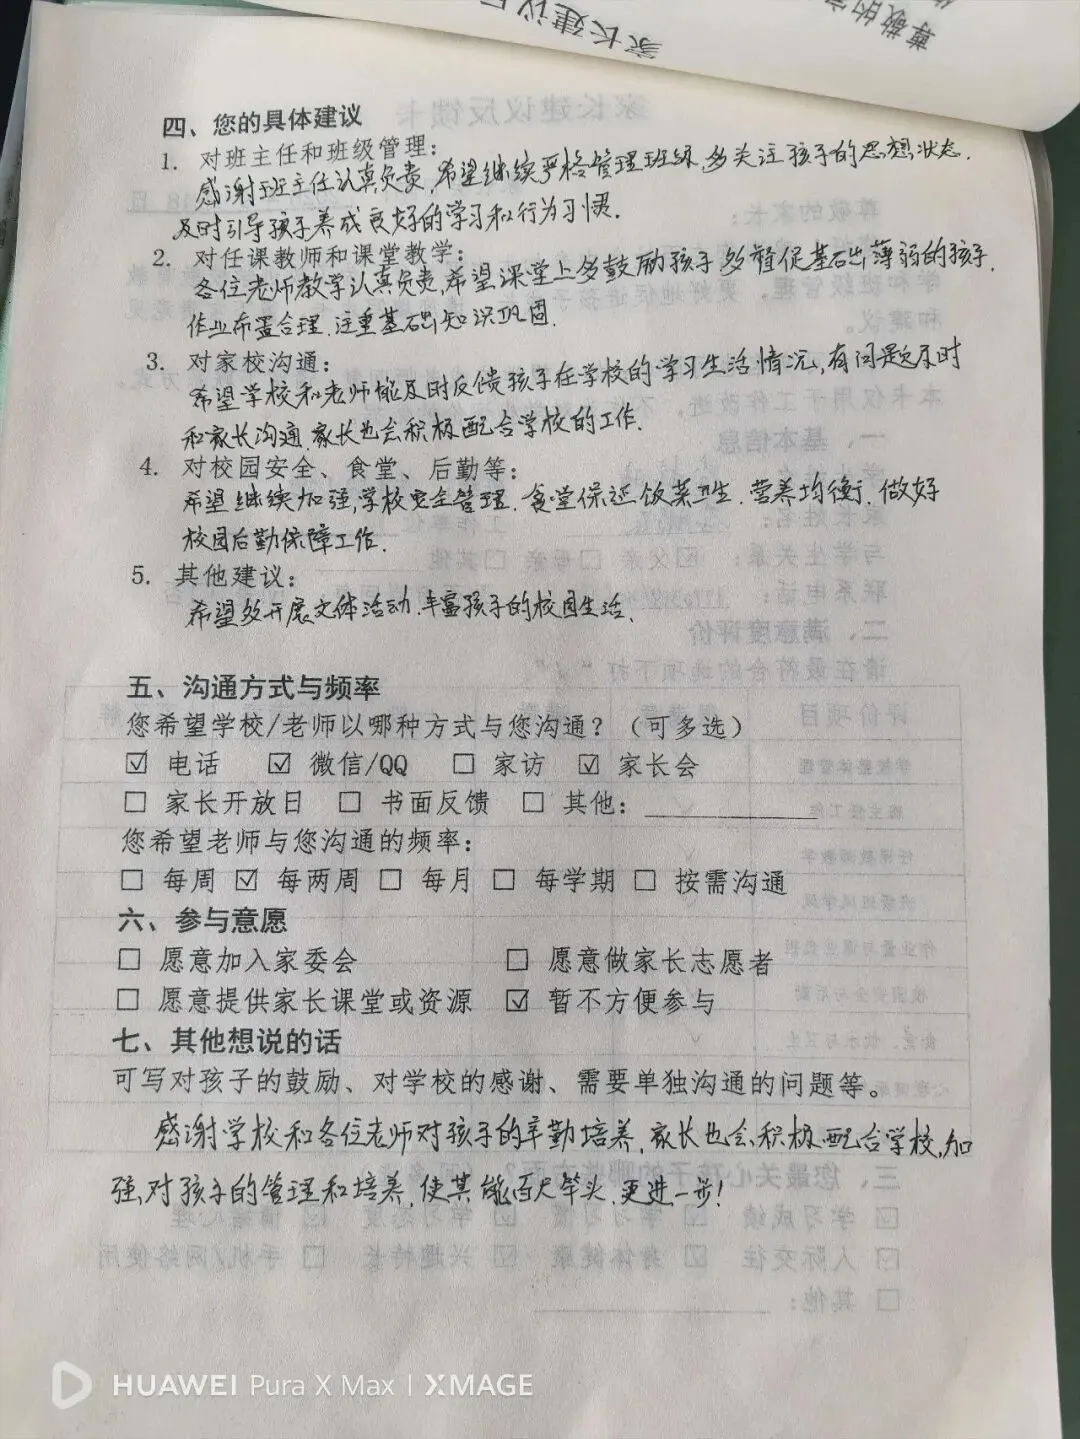 家长建议反
尊敬的家
四、您的具体建议
1. 对班主任和班级管理：
感谢班主任认真负责，希望继续严格管理班级，多关注孩子的思想状态，
及时引导孩子养成良好的学习和行为习惯．
2. 对任课教师和课堂教学：
各位老师教学认真负责，希望课堂上多鼓励孩子，多督促基础薄弱的孩子，
作业布置合理，注重基础知识巩固．
3. 对家校沟通：
希望学校和老师能及时反馈孩子在学校的学习生活情况，有问题及时
和家长沟通，家长也会积极配合学校的工作．
4. 对校园安全、食堂、后勤等：
希望继续加强学校安全管理，食堂保证饭菜卫生，营养均衡，做好
校园后勤保障工作．
5. 其他建议：
希望多开展文体活动，丰富孩子的校园生活．
五、沟通方式与频率
您希望学校/老师以哪种方式与您沟通？（可多选）
☑ 电话 ☑ 微信/QQ ☐ 家访 ☑ 家长会
☐ 家长开放日 ☐ 书面反馈 ☐ 其他：
您希望老师与您沟通的频率：
☐ 每周 ☑ 每两周 ☐ 每月 ☐ 每学期 ☐ 按需沟通
六、参与意愿
☐ 愿意加入家委会 ☐ 愿意做家长志愿者
☐ 愿意提供家长课堂或资源 ☑ 暂不方便参与
七、其他想说的话
可写对孩子的鼓励、对学校的感谢、需要单独沟通的问题等。
感谢学校和各位老师对孩子的辛勤培养，家长也会积极配合学校，加
强对孩子的管理和培养，使其能百尺竿头，更进一步！
HUAWEI Pura X Max | XMAGE